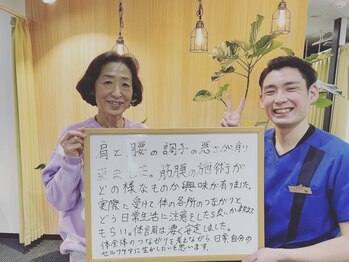 肩と腰の調子の悪さが
筋膜の施術が
どの様なものか興味が有りました。
実際に受けて体の各所のつながりと
どう日常生活に注意としたら良いか教えて
もらい。体調は凄く安定しました。
体全体のつながりを考えながら、日常、自分の
セルフケアに生かしたいと思います。